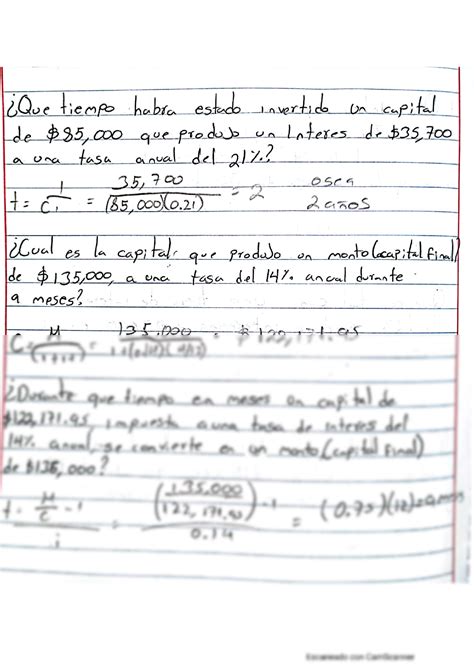 ¿Que tiempo habra estado invertido un capital
de $85,000 que produjo un Interes de $35,700
a una tasa anual del 21%?
t = I / Ci = 35,700 / (85,000)(0.21) = 2 osea 2 años
¿Cual es la capital que produjo un monto (capital final)
de $135,000, a una tasa del 14% anual durante
9 meses?
C = M / 1+it = 135.000 / = $122,171.95
¿Durante que tiempo en meses un capital de
$122,171.95, impuesta a una tasa de interes del
14% anual, se convierte en un monto (capital final)
de $135,000?
t = M/C - 1 / i = (135,000 / 122,171.95) - 1 / 0.14 = (0.75)(12) = 9 meses
Escaneado con CamScanner